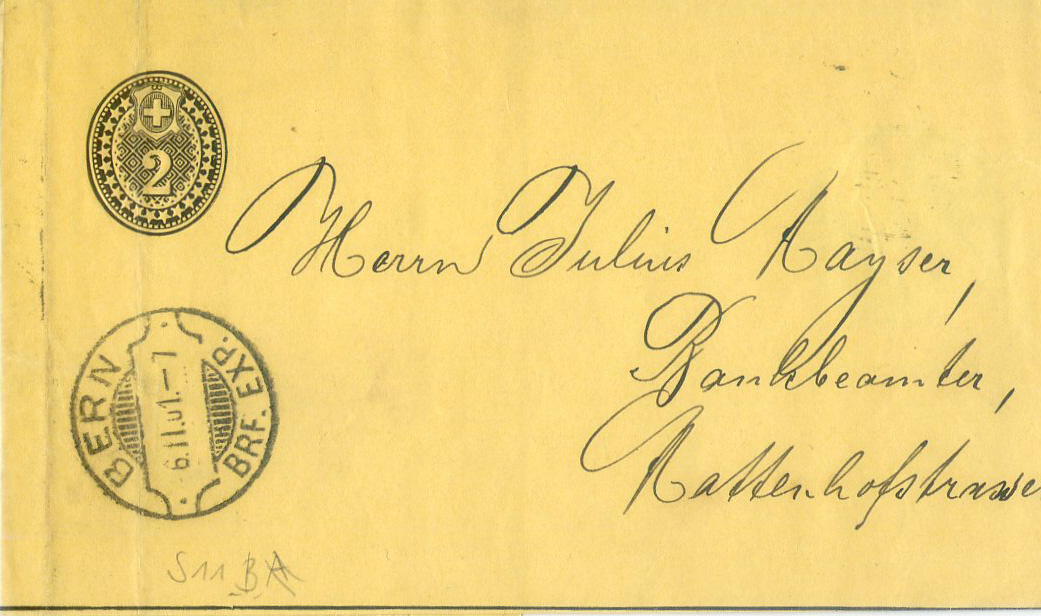 2
Herrn Julius Kayser,
Bankbeamter,
BERN
6.II.01.–7
BRF. EXP.
Mattenhofstrasse
S11 BA